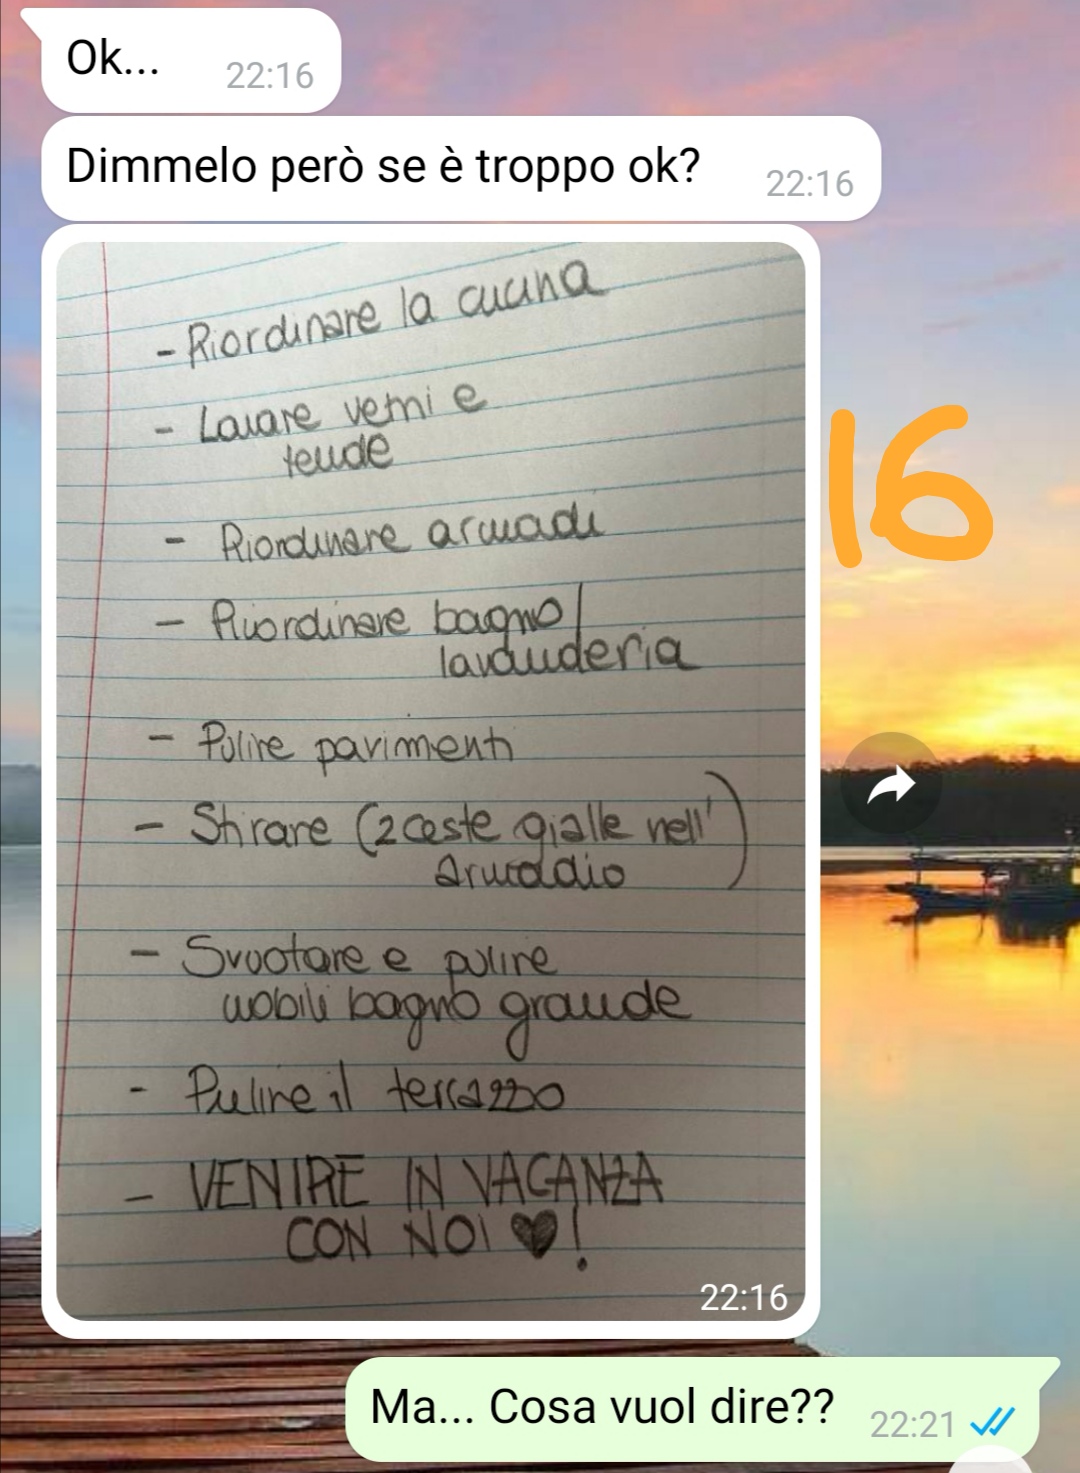 Ok...
22:16
Dimmelo però se è troppo ok?
22:16
- Riordinare la cucina
- Lavare vetri e
tende
- Riordinare armadi
16
- Riordinare bagno/
lavanderia
- Pulire pavimenti
- Stirare (2 ceste gialle nell'
armadio)
- Svuotare e pulire
mobili bagno grande
- Pulire il terrazzo
- VENIRE IN VACANZA
CON NOI ♥!
22:16
Ma... Cosa vuol dire??
22:21